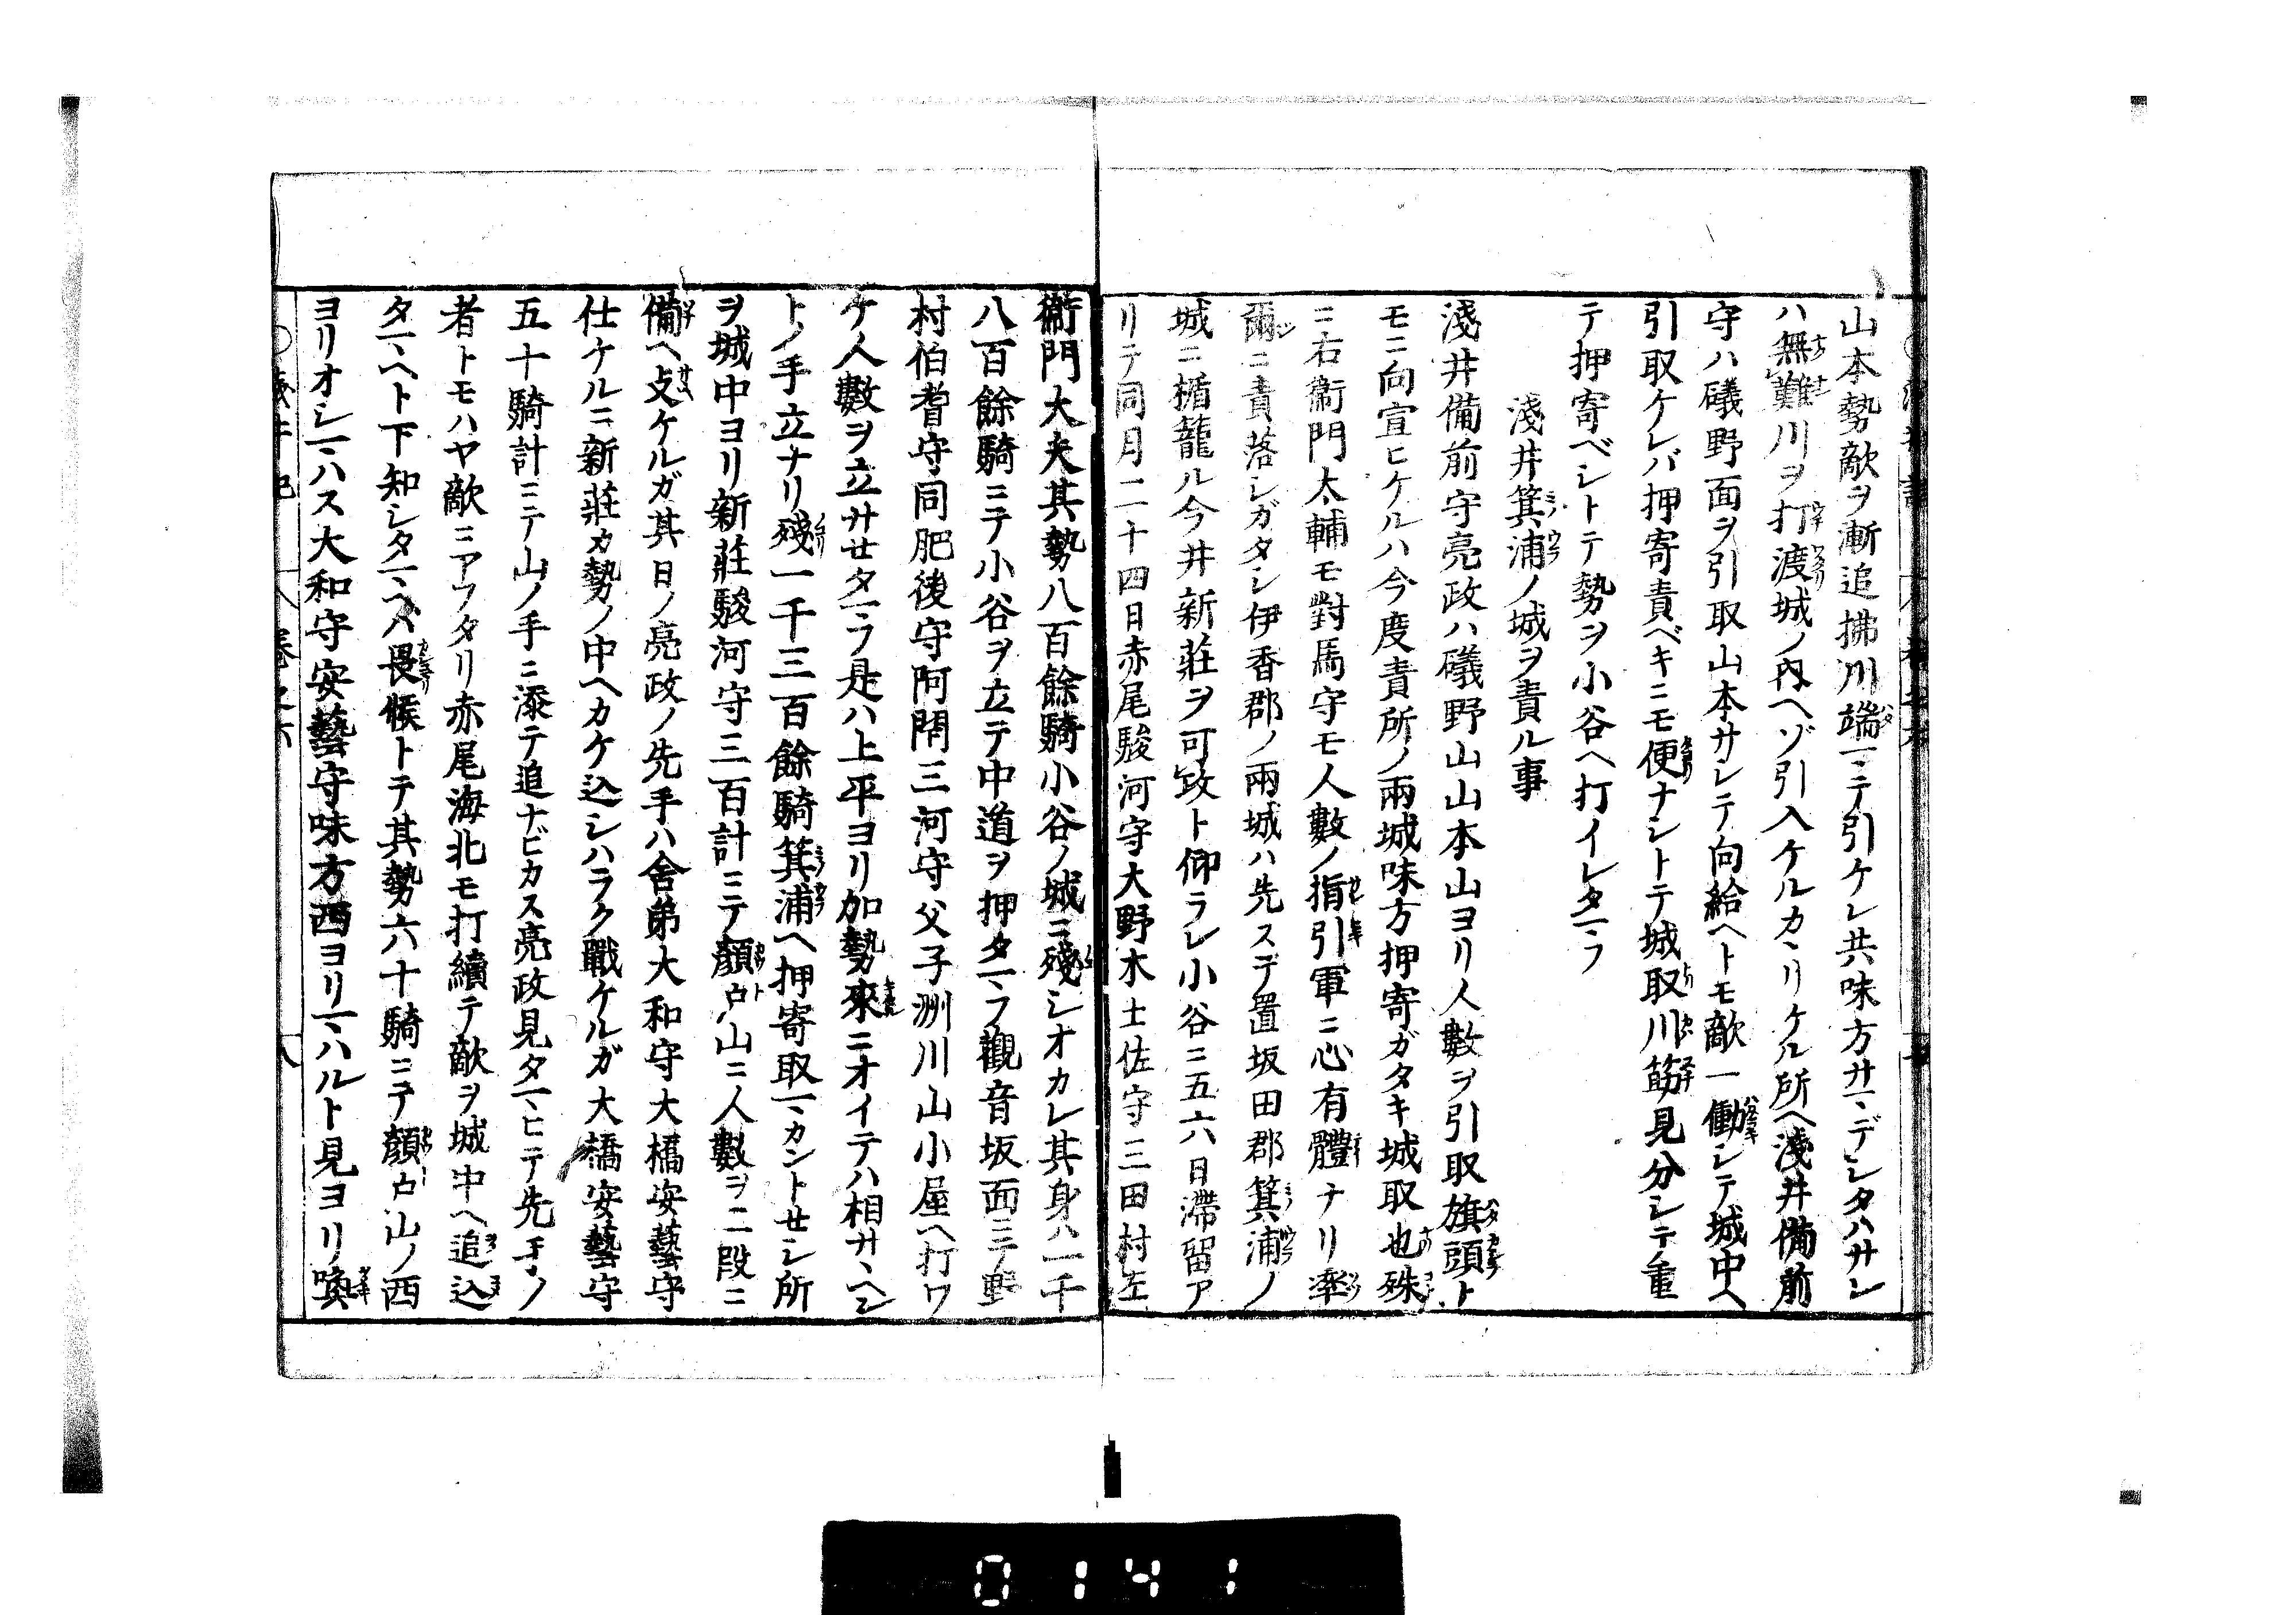 山本勢敵ヲ漸追拂川端マデ引ケレ共味方サマデシタハサレ
ハ無難川ヲ打渡城ノ內ヘゾ引入ケルカヽリケル所ヘ淺井備前
守ハ礒野面ヲ引取山本サレテ向給ヘトモ敵一働シテ城中ヘ
引取ケレバ押寄責ベキニモ便ナシトテ城取川筋見分シテ重
テ押寄ベシトテ勢ヲ小谷ヘ打イレタマフ
淺井箕浦ノ城ヲ責ル事
淺井備前守亮政ハ礒野山山本山ヨリ人數ヲ引取旗頭ト
モニ向宣ヒケルハ今度責所ノ兩城味方押寄ガタキ城取也殊
ニ右衞門太輔モ對馬守モ人數ノ指引軍ニ心有體ナリ率
爾ニ責落シガタシ伊香郡ノ兩城ハ先ステ置坂田郡箕浦ノ
城ニ楯籠ル今井新莊ヲ可攻ト仰ラレ小谷ニ五六日滯留ア
リテ同月二十四日赤尾駿河守大野木土佐守三田村左
衞門大夫其勢八百餘騎小谷ノ城ニ殘シオカレ其身ハ一千
八百餘騎ニテ小谷ヲ立テ中道ヲ押タマフ觀音坂面ニテ野
村伯耆守同肥後守阿閉三河守父子洲川山小屋ヘ打ワ
ケノ人數ヲ立サセタマフ是ハ上平ヨリ加勢來ニオイテハ相サヽヘン
トノ手立ナリ殘一千三百餘騎箕浦ヘ押寄取マカントセシ所
ヲ城中ヨリ新莊駿河守三百計ニテ顏戸山ニ人數ヲ二段ニ
備ヘ支ケルガ其日ノ亮政ノ先手ハ舍弟大和守大橋安藝守
仕ケルニ新莊カ勢ノ中ヘカケ込シハラク戰ケルガ大橋安藝守
五十騎計ニテ山ノ手ニ添テ追ナビカス亮政見タマヒテ先手ノ
者トモハヤ敵ニアフタリ赤尾海北モ打續テ敵ヲ城中ヘ追込
タマヘト下知シタマヘハ畏候トテ其勢六十騎ニテ顏戸山ノ西
ヨリオシマハス大和守安藝守味方西ヨリマハルト見ヨリ喚